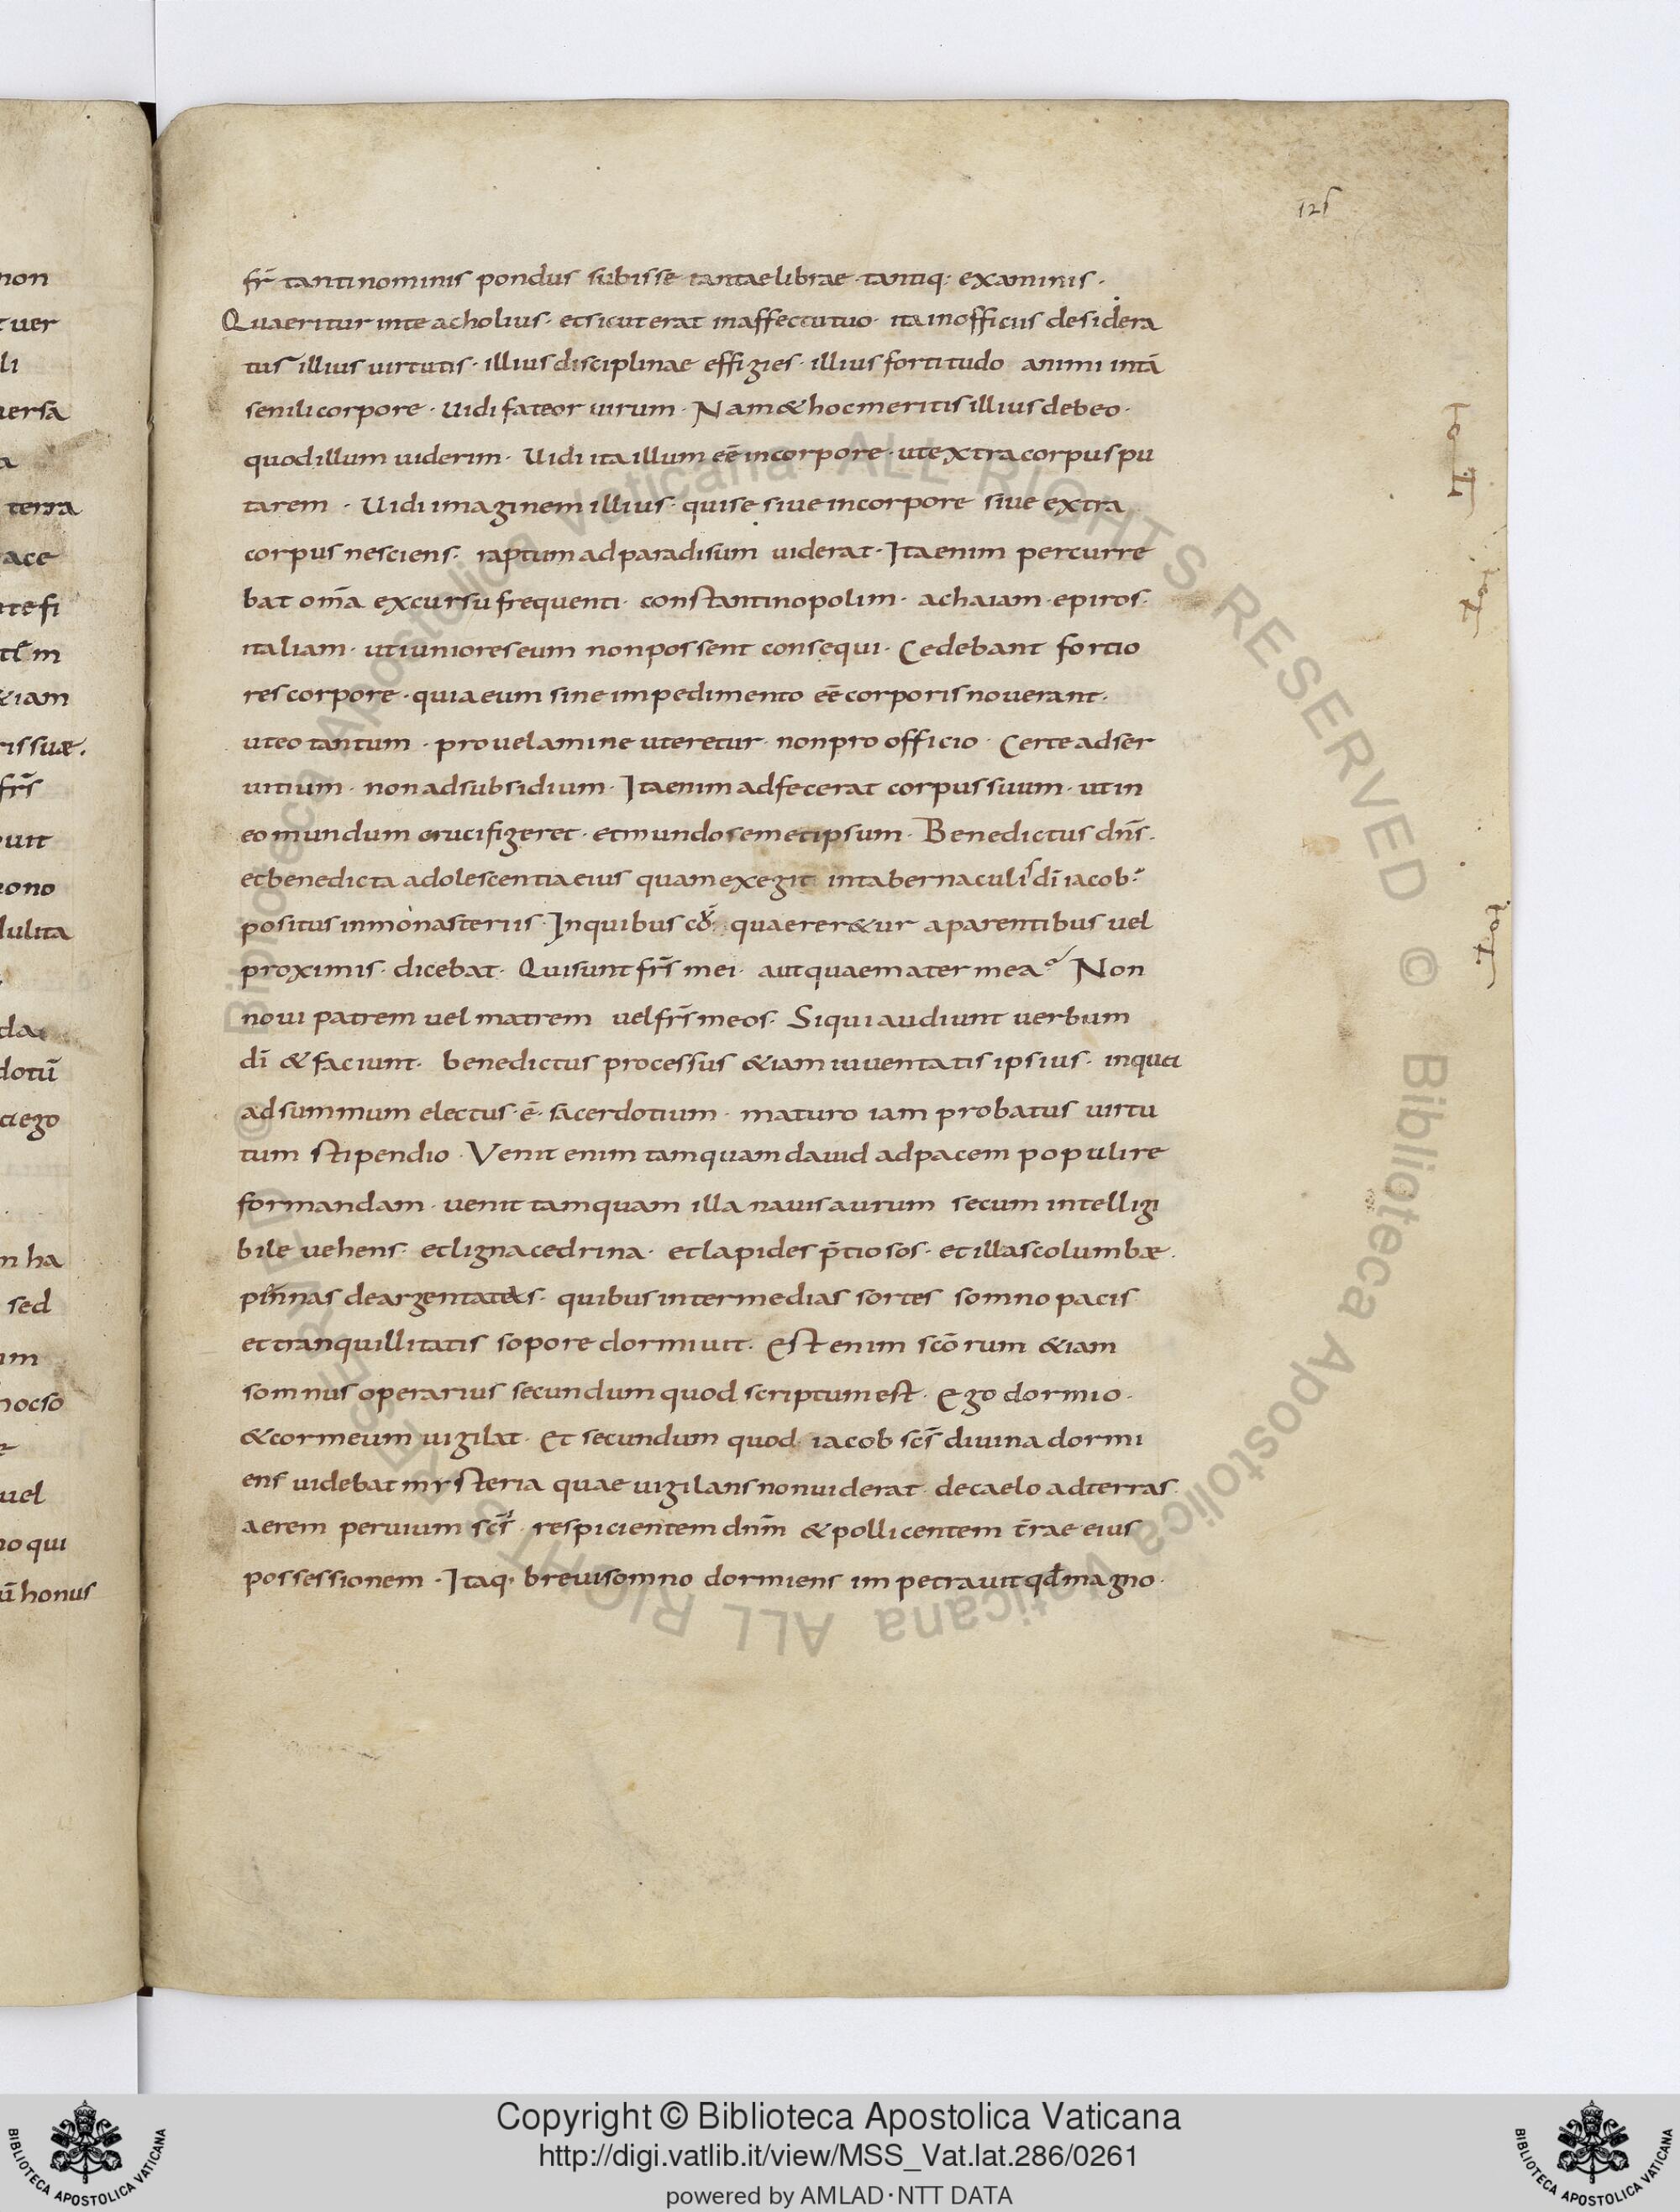 125
fr̄ tanti nominis pondus subisse tantae librae · tantiq: examinis ·
Quaeritur in te acholius · et sicut erat in affectu tuo · ita in officiis desidera
tus illius virtutis · illius disciplinae effigies · illius fortitudo animi in tā
senili corpore · Uidi fateor uirum · Nam & hoc meritis illius debeo ·
quod illum uiderim · Uidi ita illum eē in corpore · ut extra corpus pu
tarem · Uidi imaginem illius · qui se siue in corpore siue extra
corpus nesciens · raptum ad paradisum uiderat · Ita enim percurre
bat om̄a excursu frequenti · constantinopolim · achaiam · epiros ·
italiam · ut iuniores eum non possent consequi · Cedebant fortio
res corpore · quia eum sine impedimento eē corporis nouerant ·
ut eo tantum · pro uelamine uteretur · non pro officio · Certe ad ser
uitium · non ad subsidium · Ita enim adfecerat corpus suum · ut in
eo mundum crucifigeret · et mundo semetipsum · Benedictus dn̄s ·
et benedicta adolescentia eius quam exegit in tabernaculis dī iacob ·
positus in monasteriis · In quibus cū quaerer&ur a parentibus uel
proximis · dicebat · Qui sunt fr̄s mei · aut quae mater mea? Non
noui patrem uel matrem uel fr̄s meos · Si qui audiunt uerbum
dī & faciunt · benedictus processus &iam iuuentatis ipsius · in qua
ad summum electus · ē · sacerdotium · maturo iam probatus uirtu
tum stipendio · Venit enim tamquam dauid ad pacem populi re
formandam · uenit tamquam illa nauis aurum secum intelligi
bile uehens · et ligna cedrina · et lapides p̄tiosos · et illas columbæ ·
pinnas deargentatas · quibus inter medias sortes somno pacis
et tranquillitatis sopore dormiuit · Est enim scōrum &iam
somnus operarius secundum quod scriptum est · Ego dormio ·
& cor meum uigilat · Et secundum quod iacob scs̄ diuina dormi
ens uidebat mysteria quae uigilans non uiderat · de caelo ad terras ·
aerem peruium scīs · respicientem dnm̄ & pollicentem t̄rae eius
possessionem · Itaq· breui somno dormiens impetrauit qđ magno ·
non
uer
li
uersa
a
terra
ace
te fi
&iam
ris suæ.
fr̄s
uit
ono
dulita
da
dotū
ego
ha
sed
im
hocso
uel
no qui
ū honus
© Biblioteca Apostolica Vaticana ALL RIGHTS RESERVED
© Biblioteca Apostolica Vaticana ALL RIGHTS RESERVED
Copyright © Biblioteca Apostolica Vaticana
http://digi.vatlib.it/view/MSS_Vat.lat.286/0261
powered by AMLAD·NTT DATA
BIBLIOTECA APOSTOLICA VATICANA
BIBLIOTECA APOSTOLICA VATICANA